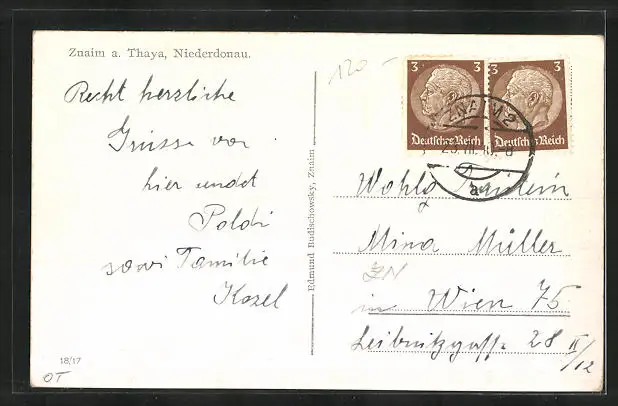 Znaim a. Thaya, Niederdonau.
120 -
3 3
Deutsches Reich Deutsches Reich
ZNAIM 2
a
Recht herzliche
Grüsse von
hier sendet
Poldi
sowi Familie
Kozel
Edmund Rudischowsky, Znaim
Wohlg Fräulein
Mina Müller
ZN
in Wien 75.
Leibnitzgasse 28 II/12
18/17
OT